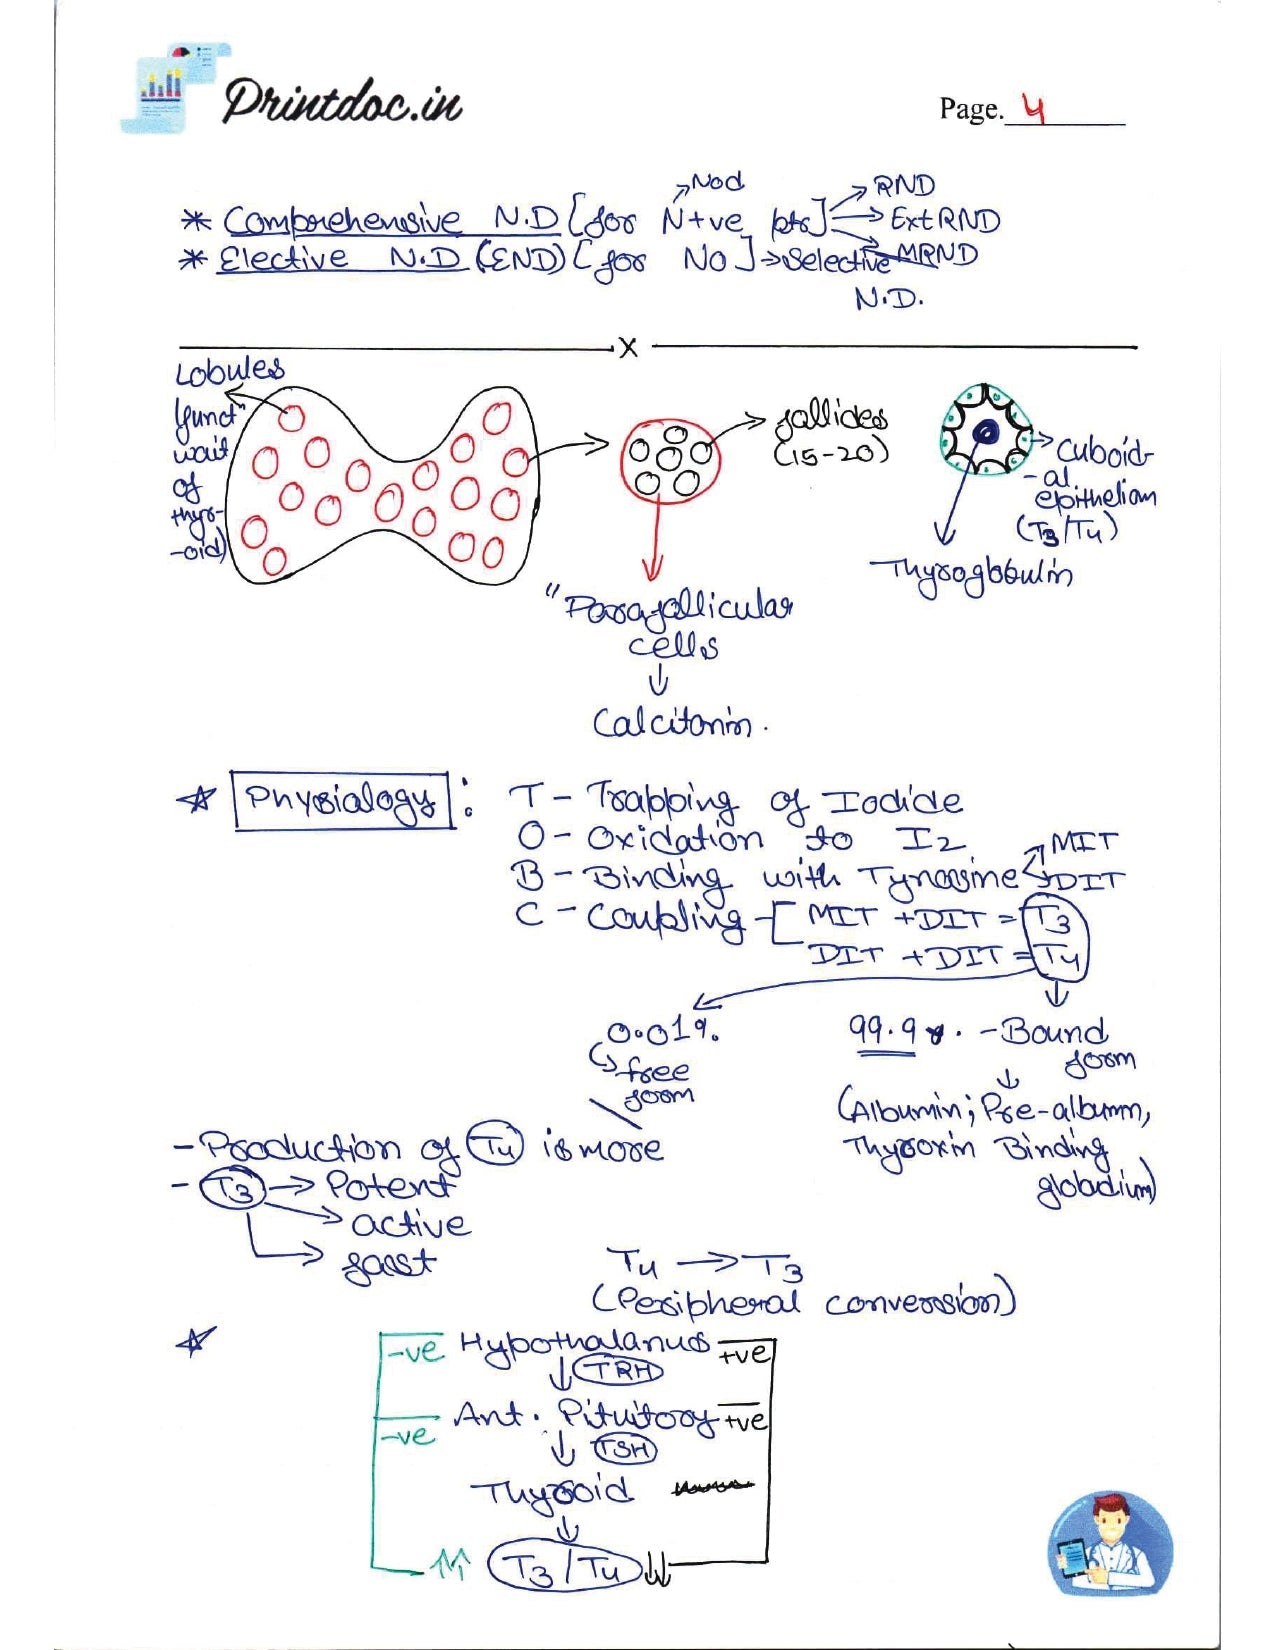 Printdoc.in
Page. 4
Nod
* Comprehensive N.D [for N+ve pts] RND
Ext RND
MRND
* Elective N.D (END) [for No] → Selective
N.D.
x
Lobules
(funct"
unit
of
thyr-
-oid)
follicles
(15-20)
Cuboid-
-al
epithelium
(T3/T4)
Thyroglobulin
"Parafollicular
cells
↓
Calcitonin.
* Physiology : T - Trapping of Iodide
O - Oxidation to I2
B - Binding with Tyrosine MIT
DIT
C - Coupling - [ MIT + DIT = T3
DIT + DIT = T4
0.01%
free
form
99.9%. - Bound
form
(Albumin; Pre-albumn,
Thyroxin Binding
- Production of T4 is more
- T3 → Potent
→ active
→ fast
T4 → T3
(Peripheral conversion)
* -ve Hypothalamus +ve
↓ TRH
-ve Ant. Pituitory +ve
↓ TSH
Thyroid
↓
↑↑ T3/T4 ↓↓